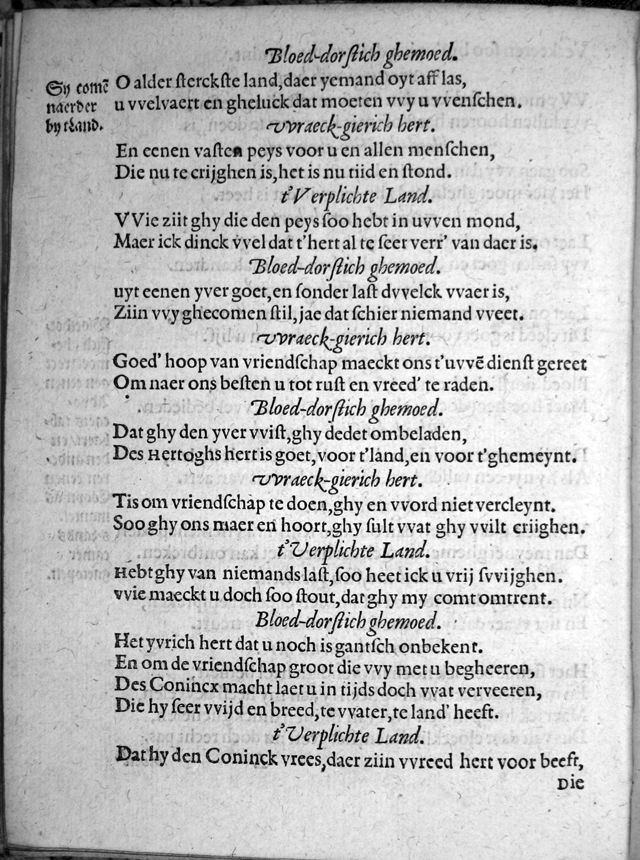 Bloed-dorſtich ghemoed.
Sij comẽ
naerder
by tLand.
O alder ſterckſte land, daer yemand oyt aff las,
u vvelvaert en gheluck dat moeten vvy u vvenſchen.
vvraeck-gierich hert.
En eenen vaſten peys voor u en allen menſchen,
Die nu te crijghen is, het is nu tijd en ſtond.
t'Verplichte Land.
VVie zijt ghy die den peys ſoo hebt in uvven mond,
Maer ick dinck vvel dat t'hert al te ſeer verr' van daer is.
Bloed-dorſtich ghemoed.
uyt eenen yver goet, en ſonder laſt dvvelck vvaer is,
Zijn vvy ghecomen ſtil, jae dat ſchier niemand vveet.
vvraeck-gierich hert.
Goed' hoop van vriendſchap maeckt ons t'uvvẽ dienſt gereet
Om naer ons beſten u tot ruſt en vreed' te raden.
Bloed-dorſtich ghemoed.
Dat ghy den yver vviſt, ghy dedet ombeladen,
Des Hertoghs hert is goet, voor t'lãnd, en voor t'ghemeynt.
vvraeck-gierich hert.
Tis om vriendſchap te doen, ghy en vvord niet vercleynt.
Soo ghy ons maer en hoort, ghy ſult vvat ghy vvilt crijghen.
t'Verplichte Land.
Hebt ghy van niemands laſt, ſoo heet ick u vrij ſvvijghen.
vvie maeckt u doch ſoo ſtout, dat ghy my comt omtrent.
Bloed-dorſtich ghemoed.
Het yvrich hert dat u noch is gantſch onbekent.
En om de vriendſchap groot die vvy met u begheeren,
Des Conincx macht laet u in tijds doch vvat verveeren,
Die hy ſeer vvijd en breed, te vvater, te land' heeft.
t'Verplichte Land.
Dat hy den Coninck vrees, daer zijn vvreed hert voor beeft,
Die